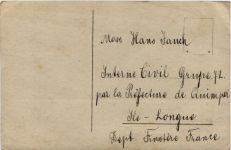 Hans Jauch
Interne Civil Grupe 72
par la Préfecture de Quimper
Ile-Longue
Dept. Finistère France